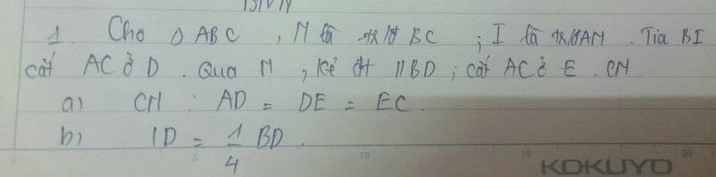 1 Cho Δ ABC , M là BC ; I là AM . Tia BI
cắt AC ở D . Qua M , kẻ đt // BD ; cắt AC ở E . CM
a) CM AD = DE = EC .
b) ID = 1/4 BD .
KOKUYO